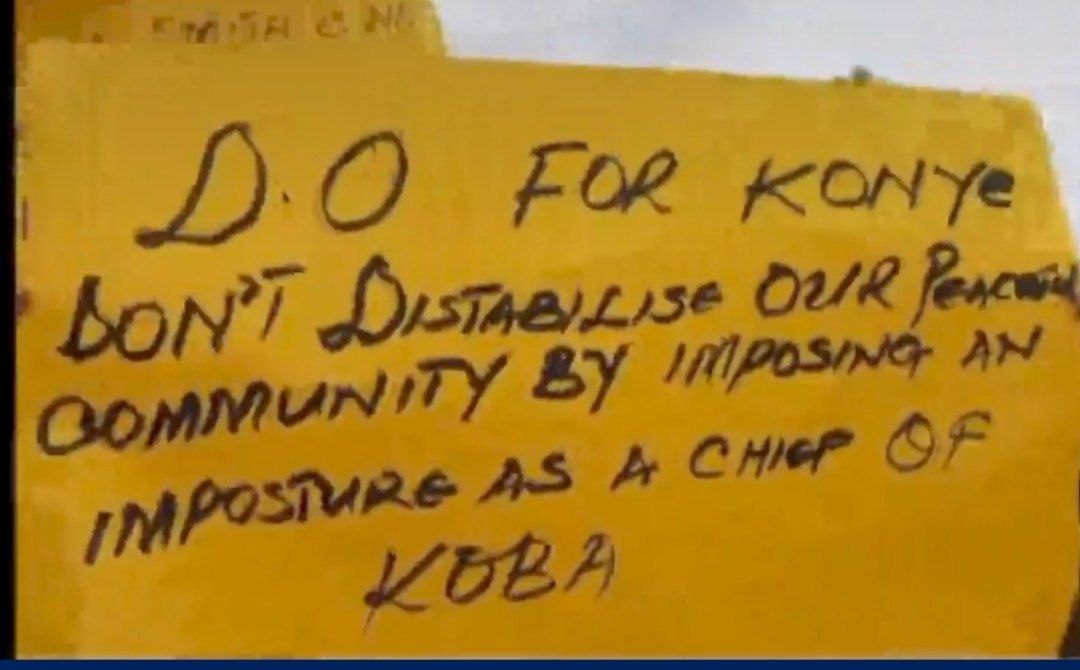 D.O FOR KONYe
DON'T DISTABILISE OUR PEACEFUL
COMMUNITY BY IMPOSING AN
IMPOSTURE AS A CHIEF OF
KOBA